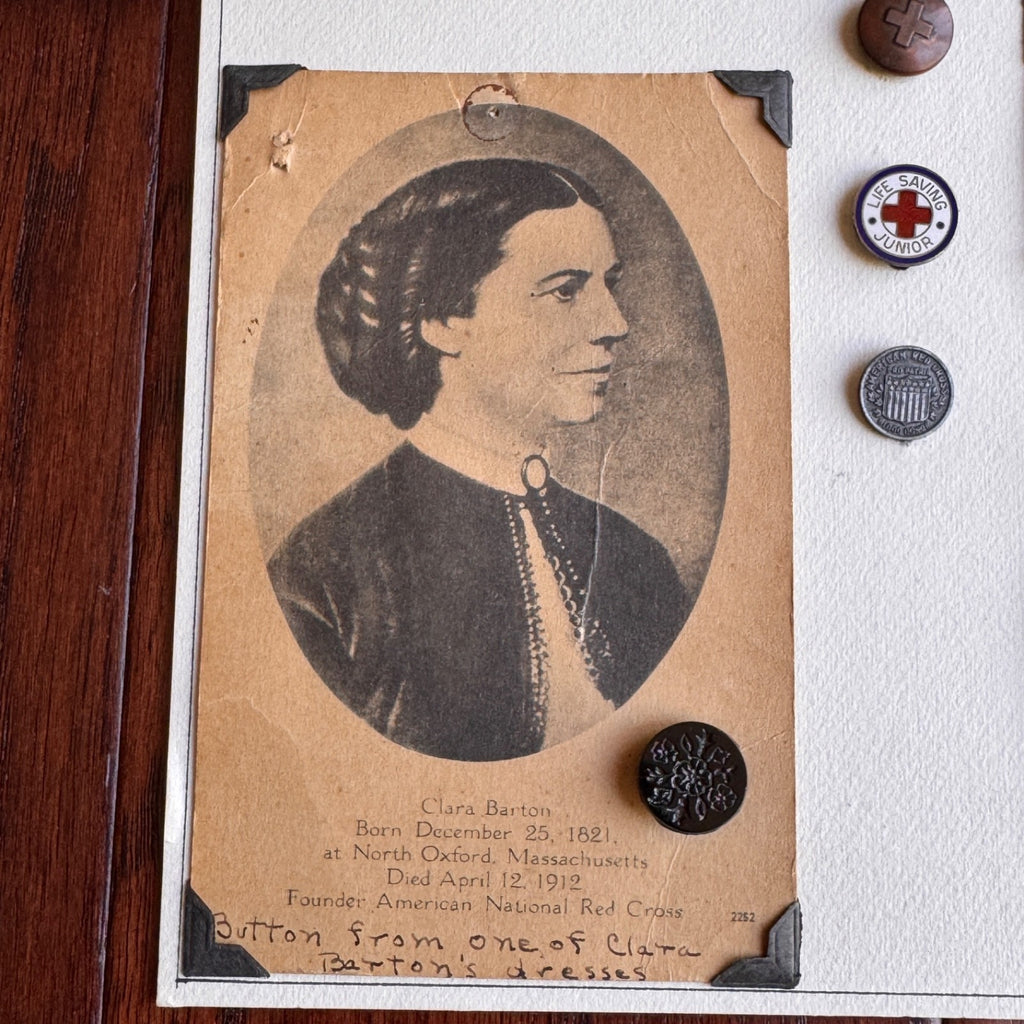 LIFE SAVING
JUNIOR
AMERICAN RED CROSS
Clara Barton
Born December 25, 1821,
at North Oxford, Massachusetts
Died April 12, 1912
Founder American National Red Cross
2252
Button from one of Clara
Barton's dresses